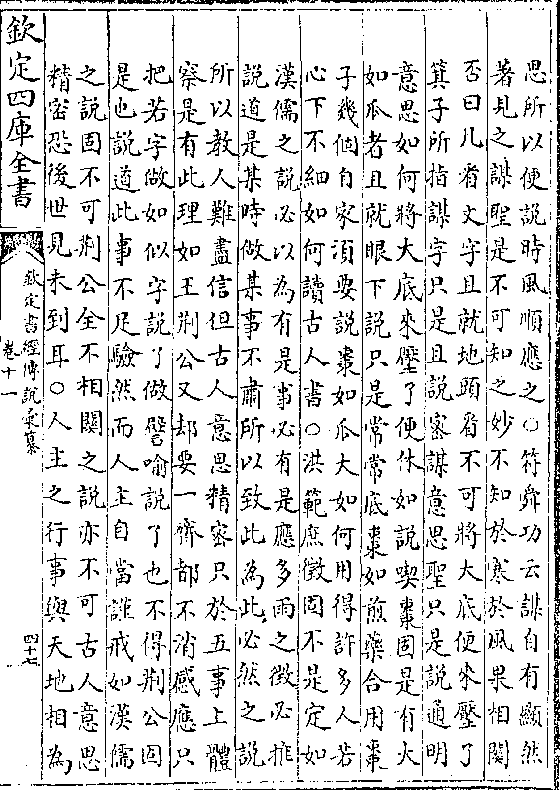 思所以便說時風順應之○符舜功云謀自有顯然
著見之謀聖是不可知之妙不知於寒於風果相關
否曰凡㸔文字且就地頭㸔不可將大底便來壓了
箕子所指謀字只是且說密謀意思聖只是說通明
意思如何將大底來壓了便休如說喫棗固是有大
如瓜者且就眼下說只是常常底棗如煎藥合用棗
子幾個自家須要說棗如瓜大如何用得許多人若
心下不細如何讀古人書○洪範庶徵固不是定如
漢儒之說必以為有是事必有是應多雨之徵必推
說道是某時做某事不肅所以致此為此必然之說
所以教人難盡信但古人意思精密只於五事上體
察是有此理如王荆公又却要一齊都不消感應只
把若字做如似字說了做譬喻說了也不得荆公固
是也說道此事不足驗然而人主自當謹戒如漢儒
之說固不可荆公全不相關之說亦不可古人意思
精密恐後世見未到耳○人主之行事與天地相為
欽定四庫全書
欽定書經傳說彙纂
卷十一
四十七